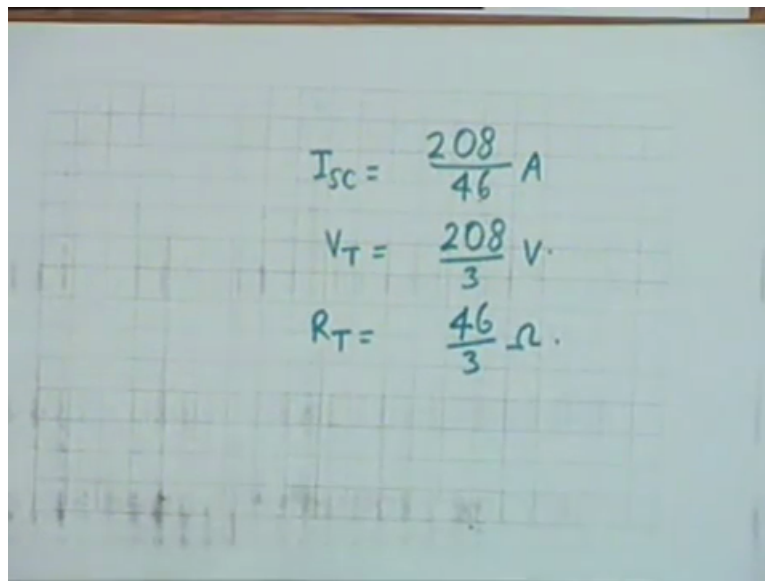 I_SC = 208/46 A
V_T = 208/3 V.
R_T = 46/3 Ω.